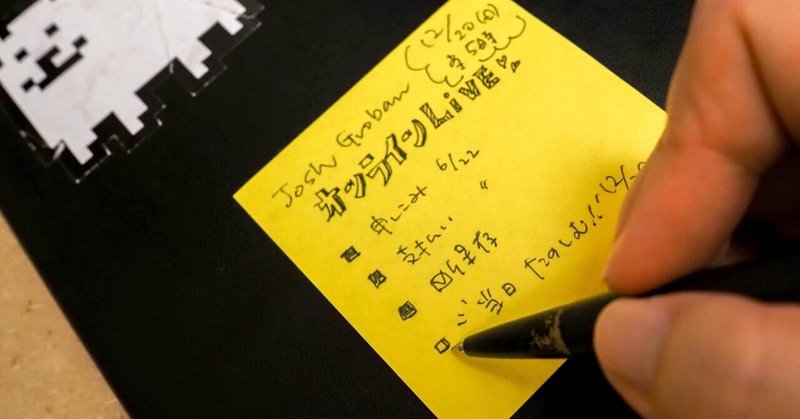 Josh Groban
12/20(日)
5時
オンラインLiVE
申しこみ 6/22
支払い 〃
保存
当日 たのしむ!! 12/20